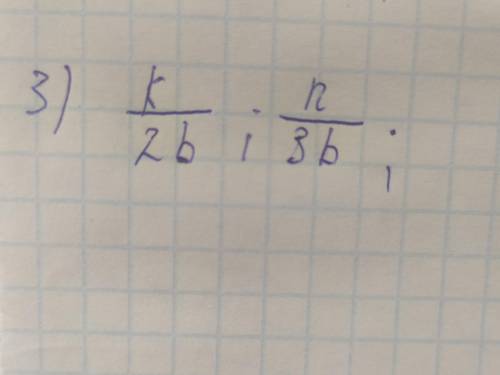 3) k/2b ; n/3b ;